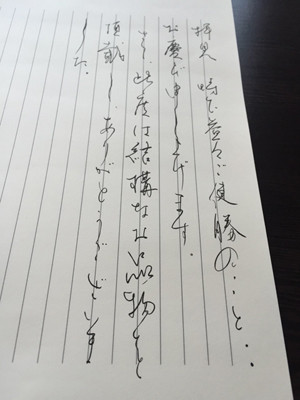 拝見 時下益々ご健勝の・・と・・
お慶び申し上げます。
さて、此度は結構なお品物を
頂戴し、ありがとうございま
した。